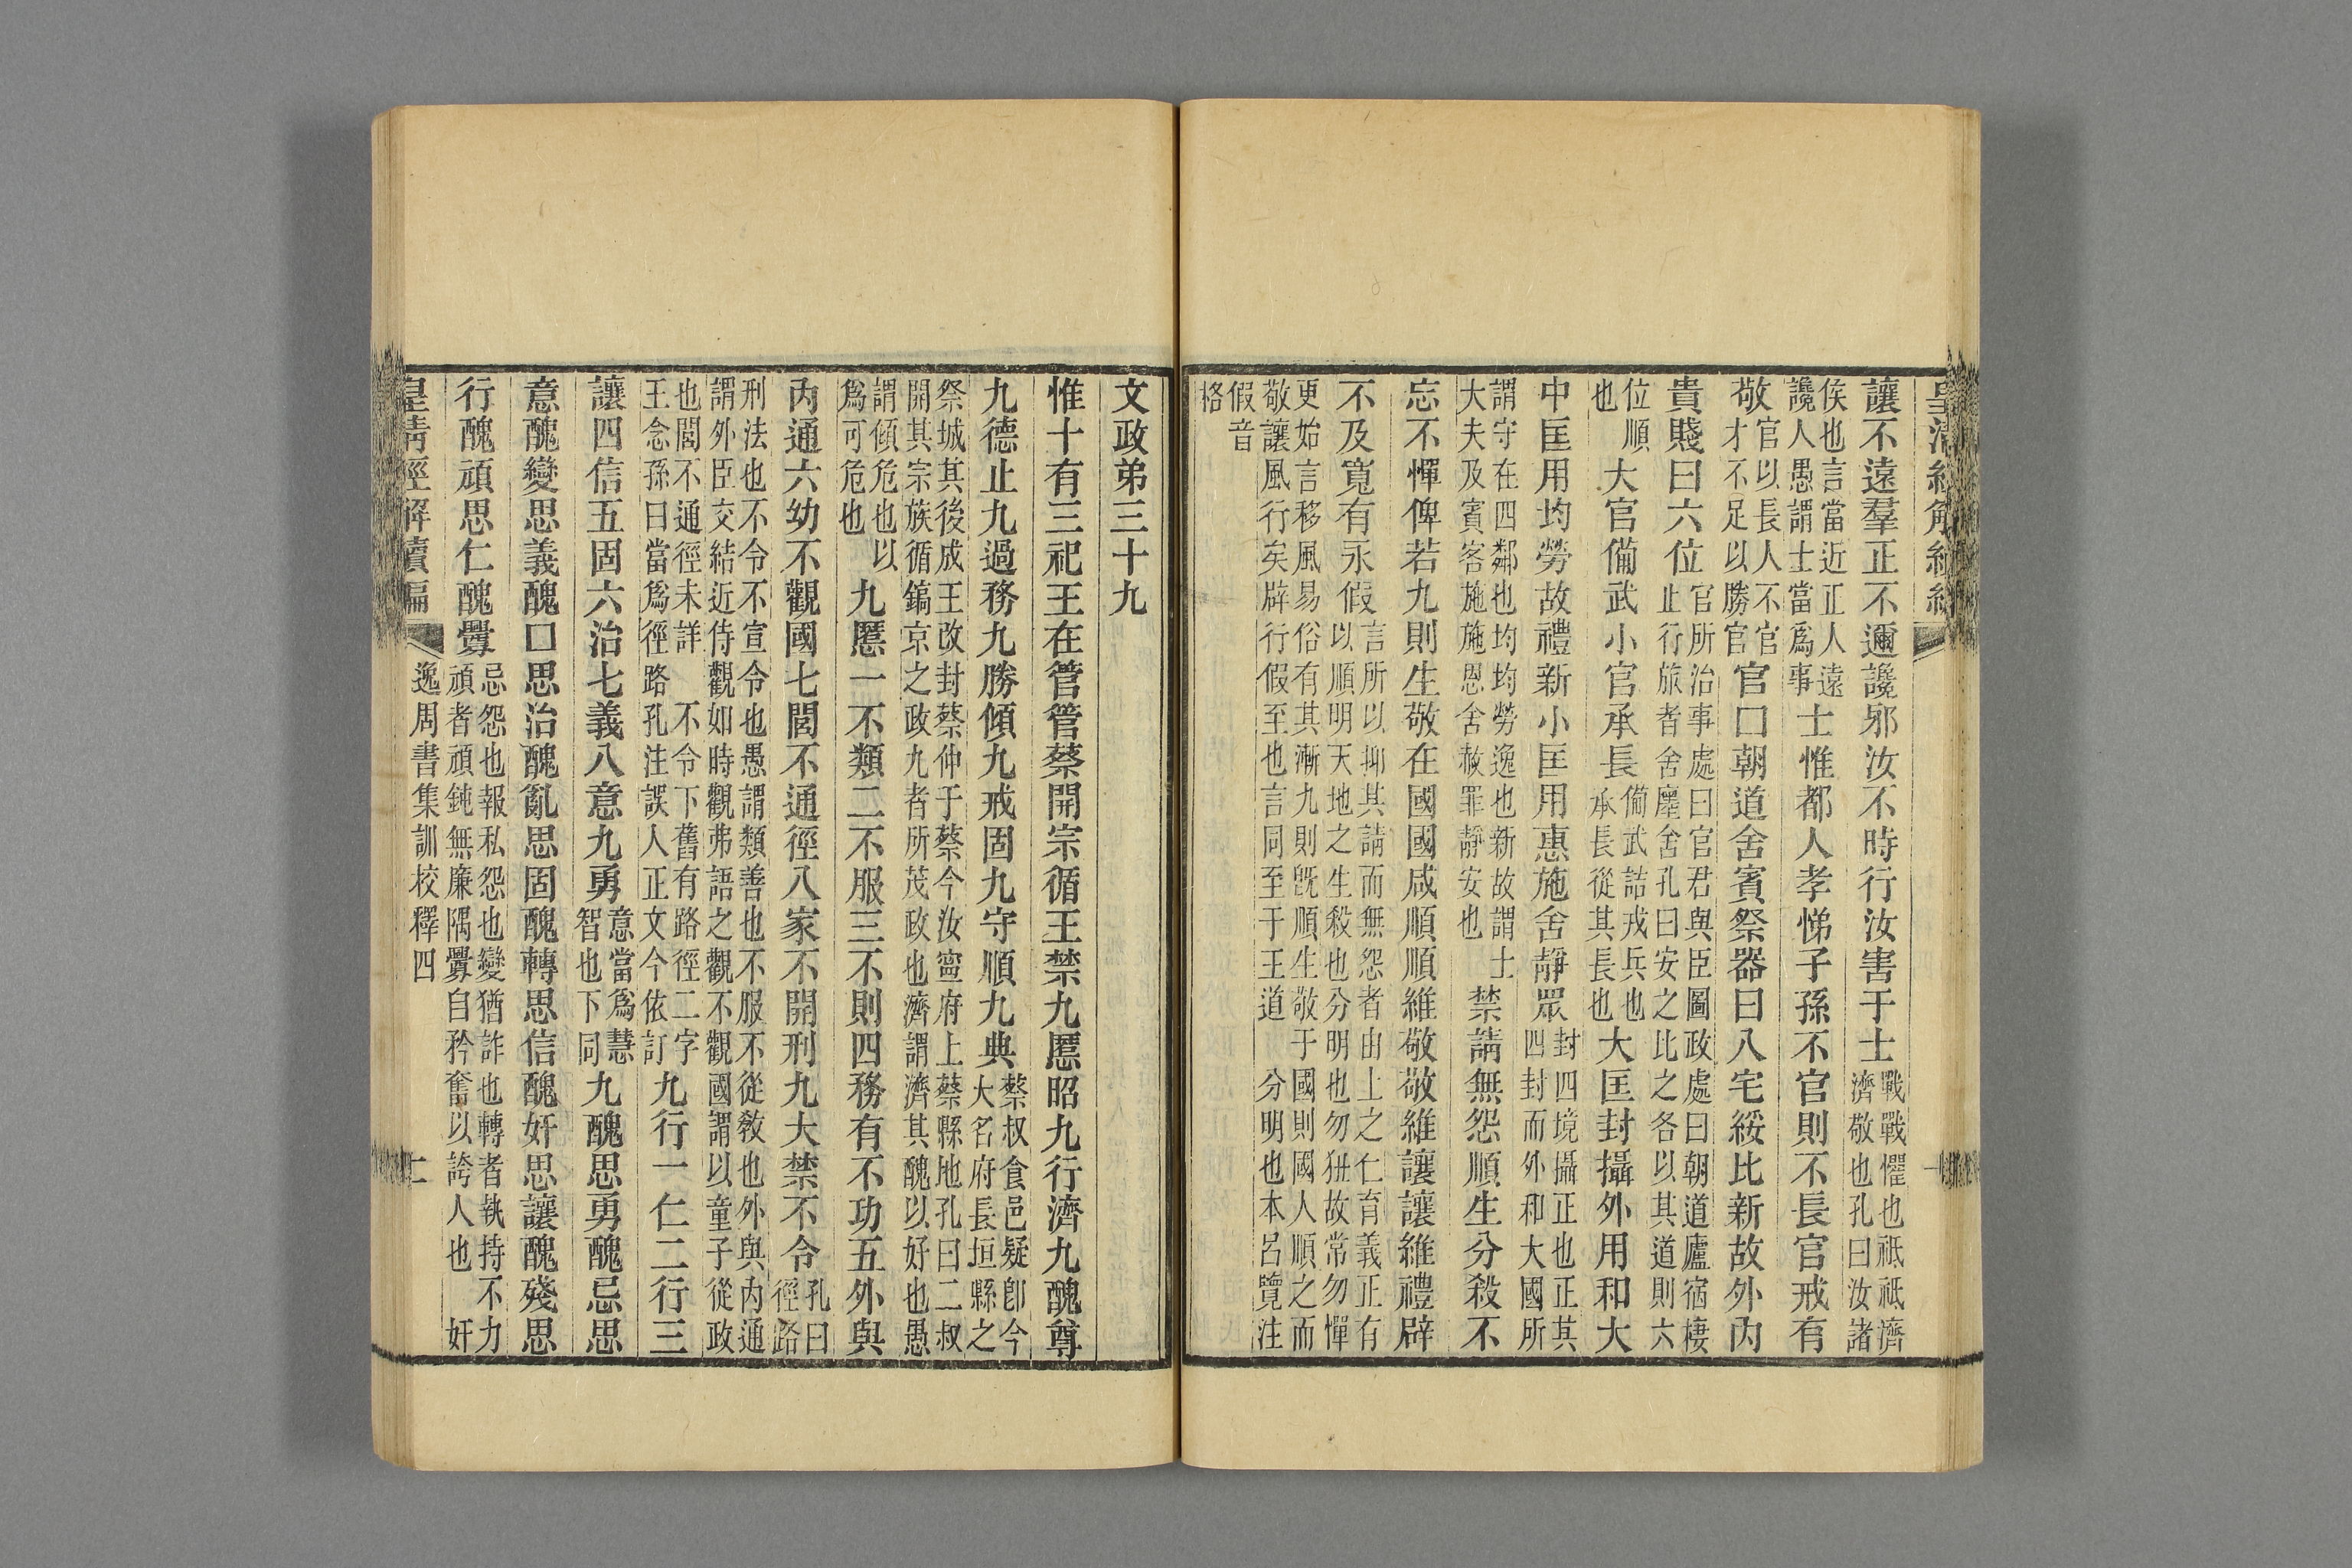 皇清經解續編
讓不遠羣正不邇讒邪汝不時行汝害于士戰戰懼也祗祗濟濟敬也孔曰汝諸
侯也言當近正人遠讒人愚謂士當爲事士惟都人孝悌子孫不官則不長官戒有
敬官以長人不官才不足以勝官官囗朝道舍賓祭器曰八宅綏比新故外內
貴賤曰六位官所治事處曰官君與臣圖政處曰朝道廬宿棲止行旅者舍廛舍孔曰安之比之各以其道則六
位順也大官僃武小官承長僃武詰戎兵也承長從其長也大匡封攝外用和大
中匡用均勞故禮新小匡用惠施舍靜眾封四境攝正也正其四封而外和大國所
謂守在四鄰也均均勞逸也新故謂士大夫及賓客施施恩舍赦罪靜安也禁請無怨順生分殺不
忘不憚俾若九則生敬在國國咸順順維敬敬維讓讓維禮辟
不及寬有永假言所以抑其請而無怨者由上之仁育義正有以順明天地之生殺也分明也勿狃故常勿憚
更始言移風易俗有其漸九則旣順生敬于國則國人順之而敬讓風行矣辟行假至也言同至于王道分明也本呂覽注
假音格
文政弟三十九
惟十有三祀王在管管蔡開宗循王禁九慝昭九行濟九醜尊
九德止九過務九勝傾九戒固九守順九典蔡叔食邑疑卽今大名府長垣縣之
祭城其後成王改封蔡仲于蔡今汝寧府上蔡縣地孔曰二叔開其宗族循鎬京之政九者所茂政也濟謂濟其醜以好也愚
謂傾危也以爲可危也九慝一不類二不服三不則四務有不功五外與
內通六幼不觀國七閭不通徑八家不開刑九大禁不令孔曰徑路
刑法也不令不宣令也愚謂類善也不服不從敎也外與內通謂外臣交結近侍觀如時觀弗語之觀不觀國謂以童子從政
也閭不通徑未詳不令下舊有路徑二字王念孫曰當爲徑路孔注誤入正文今依訂九行一仁二行三
讓四信五固六治七義八意九勇意當爲慧智也下同九醜思勇醜忌思
意醜變思義醜囗思治醜亂思固醜轉思信醜奸思讓醜殘思
行醜頑思仁醜釁忌怨也報私怨也變猶詐也轉者執持不力奸頑者頑鈍無廉隅釁自矜奮以誇人也
皇清經解續編 逸周書集訓校釋四 二